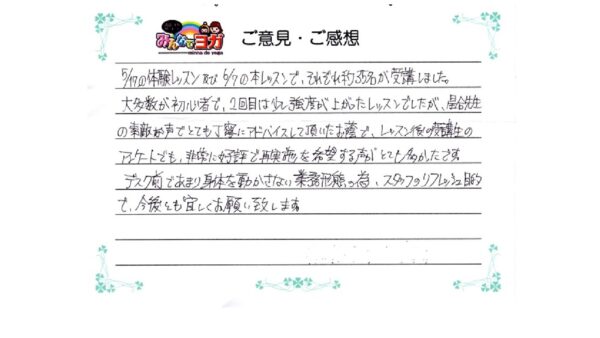 みんなでヨガ
minna de yoga
ご意見・ご感想
5/17の体験レッスン及び6/7の本レッスンで、それぞれ約35名が受講しました。
大多数が初心者で、2回目は少し強度が上がったレッスンでしたが、先生
の素敵な声でとても丁寧にアドバイスして頂いたお蔭で、レッスン後の受講生の
アンケートでも、非常に好評で再実施を希望する声がとても多かったです。
デスク前であまり身体を動かさない業務形態の為、スタッフのリフレッシュ目的
で、今後とも宜しくお願い致します